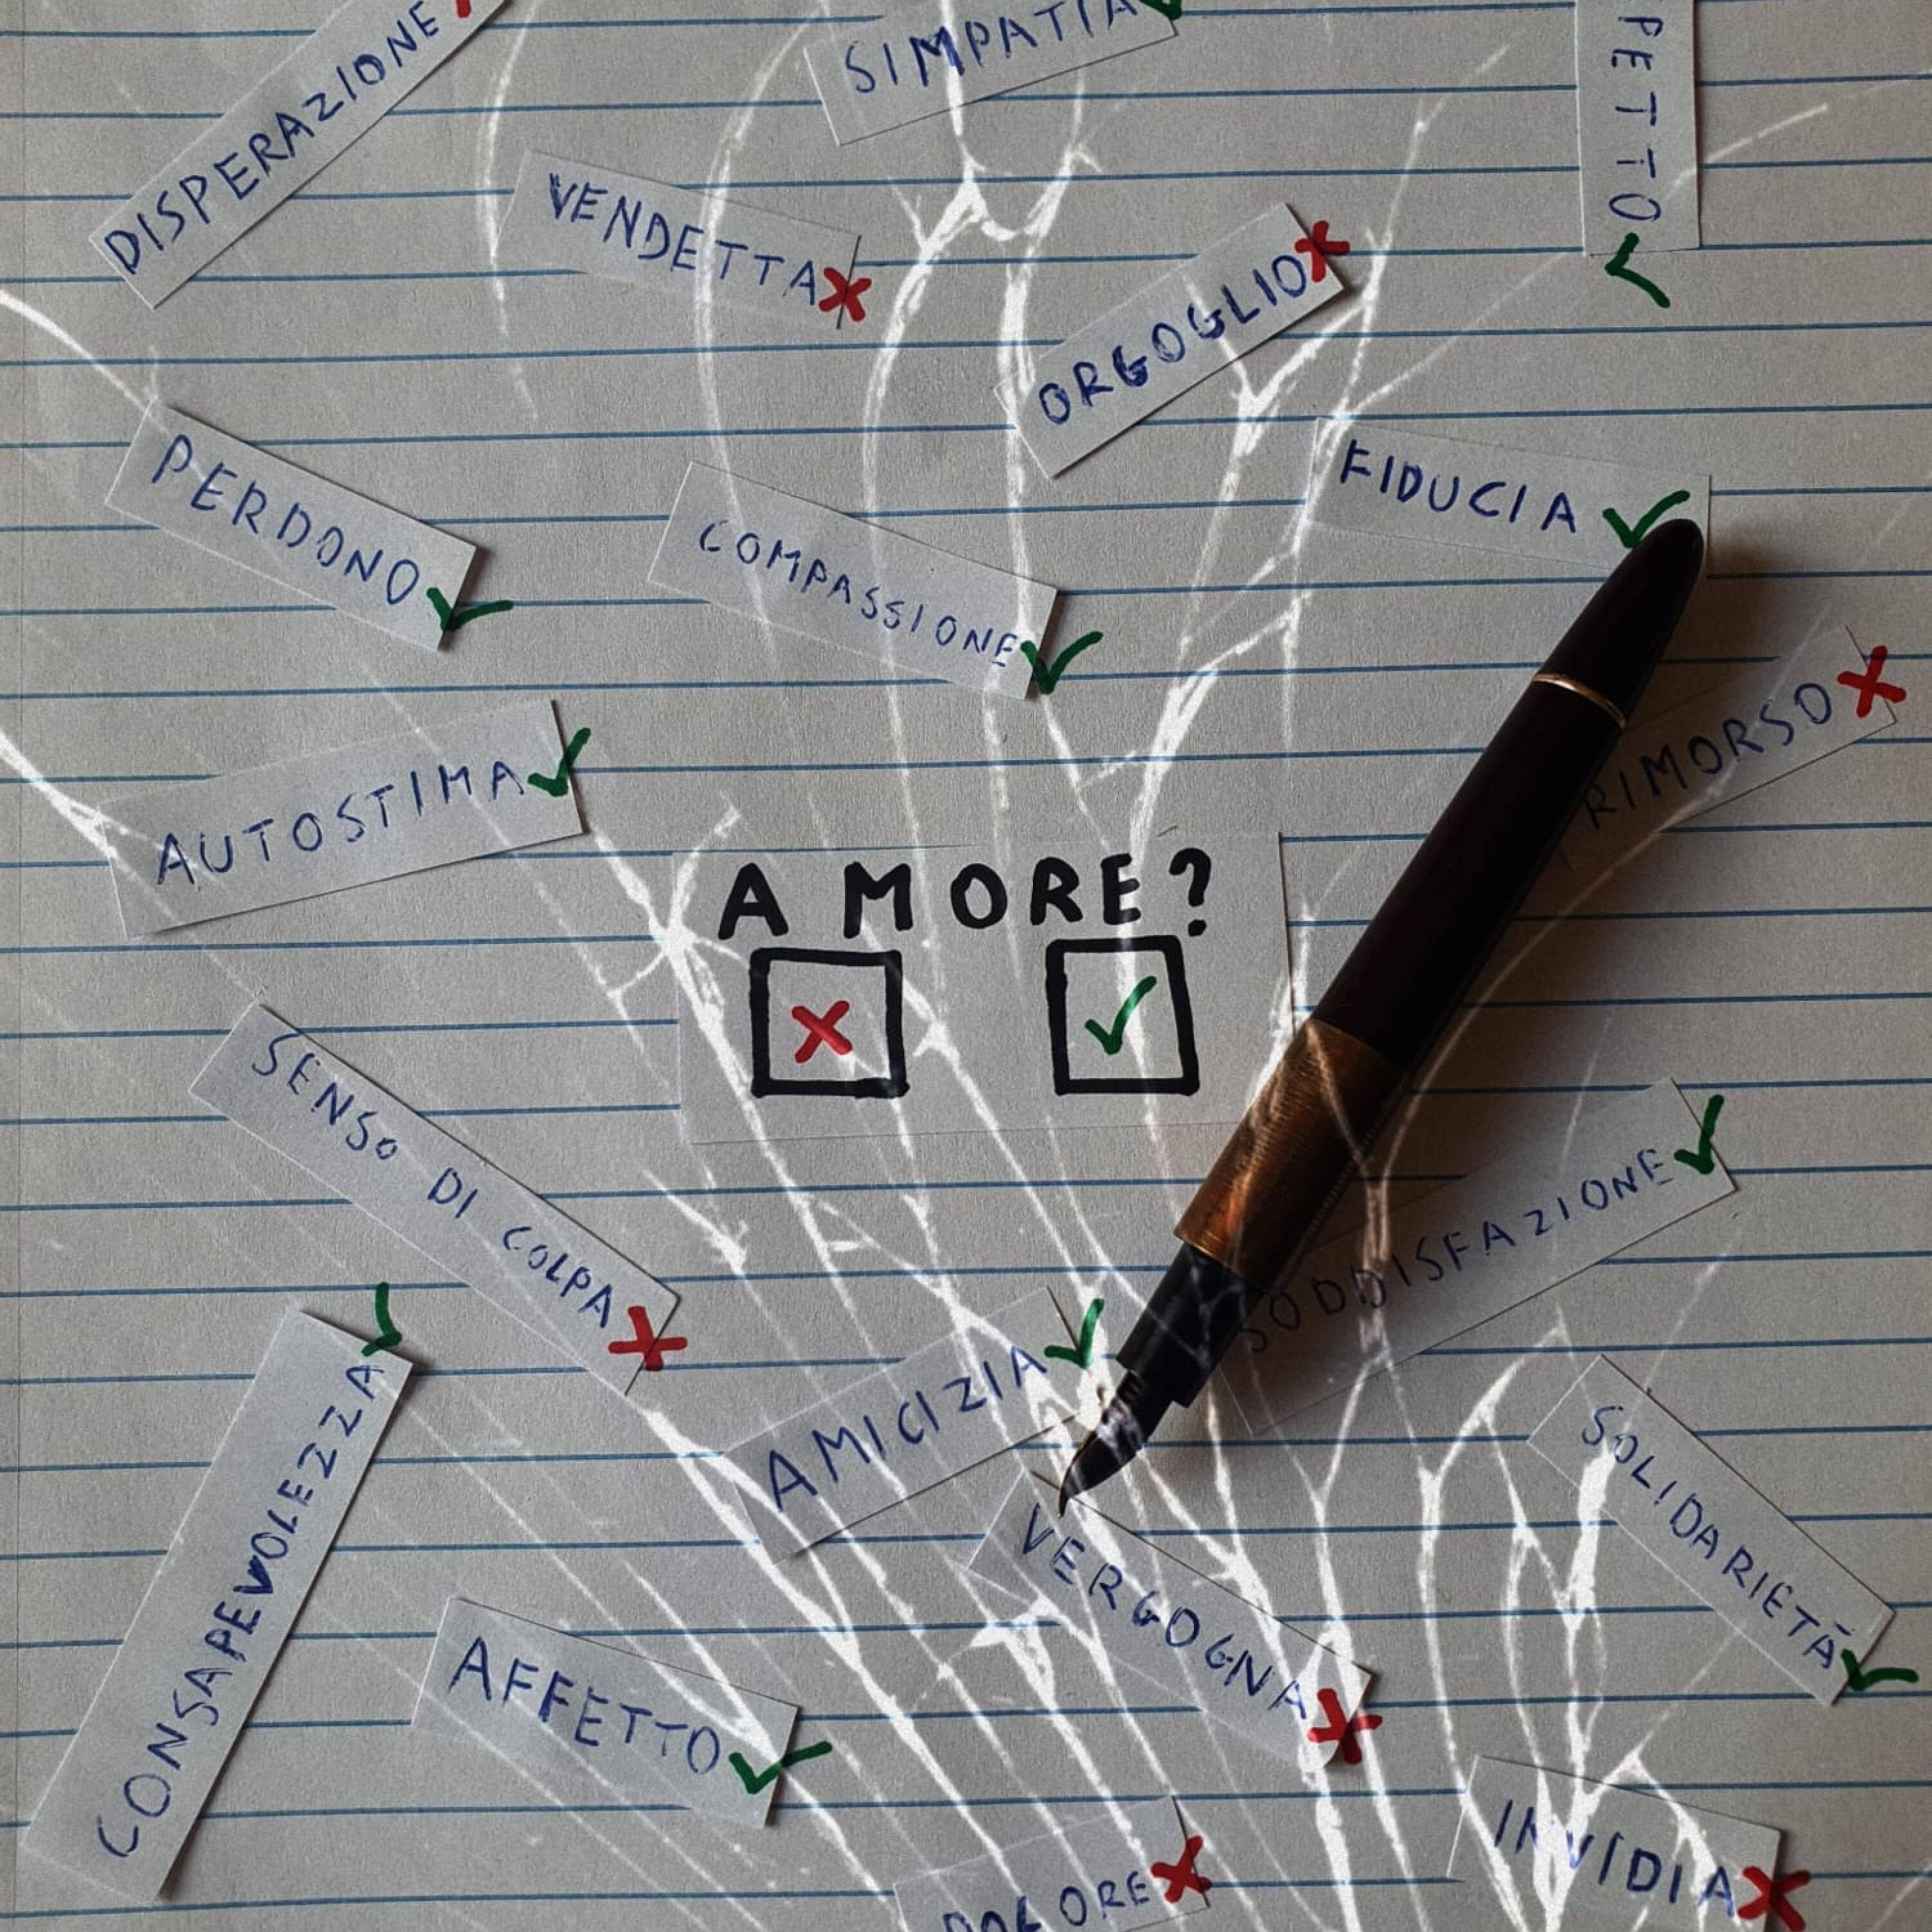 DISPERAZIONE
SIMPATIA
PETTO
VENDETTA
ORGOGLIO
PERDONO
COMPASSIONE
FIDUCIA
RIMORSO
AUTOSTIMA
A MORE?
SENSO DI COLPA
SODDISFAZIONE
AMICIZIA
CONSAPEVOLEZZA
SOLIDARIETÀ
VERGOGNA
AFFETTO
INVIDIA
DOLORE